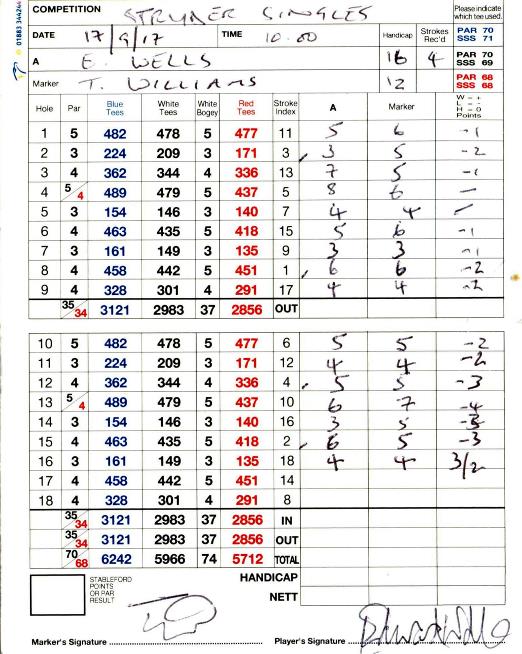 COMPETITION STRYDER SINGLES
Please indicate which tee used.
01883 344244
DATE 17/9/17 TIME 10.00 Handicap Strokes Rec'd PAR 70 SSS 71
A E. WELLS 16 4 PAR 70 SSS 69
Marker T. WILLIAMS 12 PAR 68 SSS 68
Hole Par Blue Tees White Tees White Bogey Red Tees Stroke Index A Marker W = + L = - H = 0 Points
1 5 482 478 5 477 11 5 6 -1
2 3 224 209 3 171 3 3 5 -2
3 4 362 344 4 336 13 7 5 -1
4 5/4 489 479 5 437 5 8 6 -
5 3 154 146 3 140 7 4 4 -
6 4 463 435 5 418 15 5 6 -1
7 3 161 149 3 135 9 3 3 -1
8 4 458 442 5 451 1 6 6 -2
9 4 328 301 4 291 17 4 4 -2
35/34 3121 2983 37 2856 OUT
10 5 482 478 5 477 6 5 5 -2
11 3 224 209 3 171 12 4 4 -2
12 4 362 344 4 336 4 5 5 -3
13 5/4 489 479 5 437 10 6 7 -4
14 3 154 146 3 140 16 3 5
15 4 463 435 5 418 2 6 5 -3
16 3 161 149 3 135 18 4 4 3/2
17 4 458 442 5 451 14
18 4 328 301 4 291 8
35/34 3121 2983 37 2856 IN
35/34 3121 2983 37 2856 OUT
70/68 6242 5966 74 5712 TOTAL
STABLEFORD POINTS OR PAR RESULT
HANDICAP
NETT
Marker's Signature Player's Signature